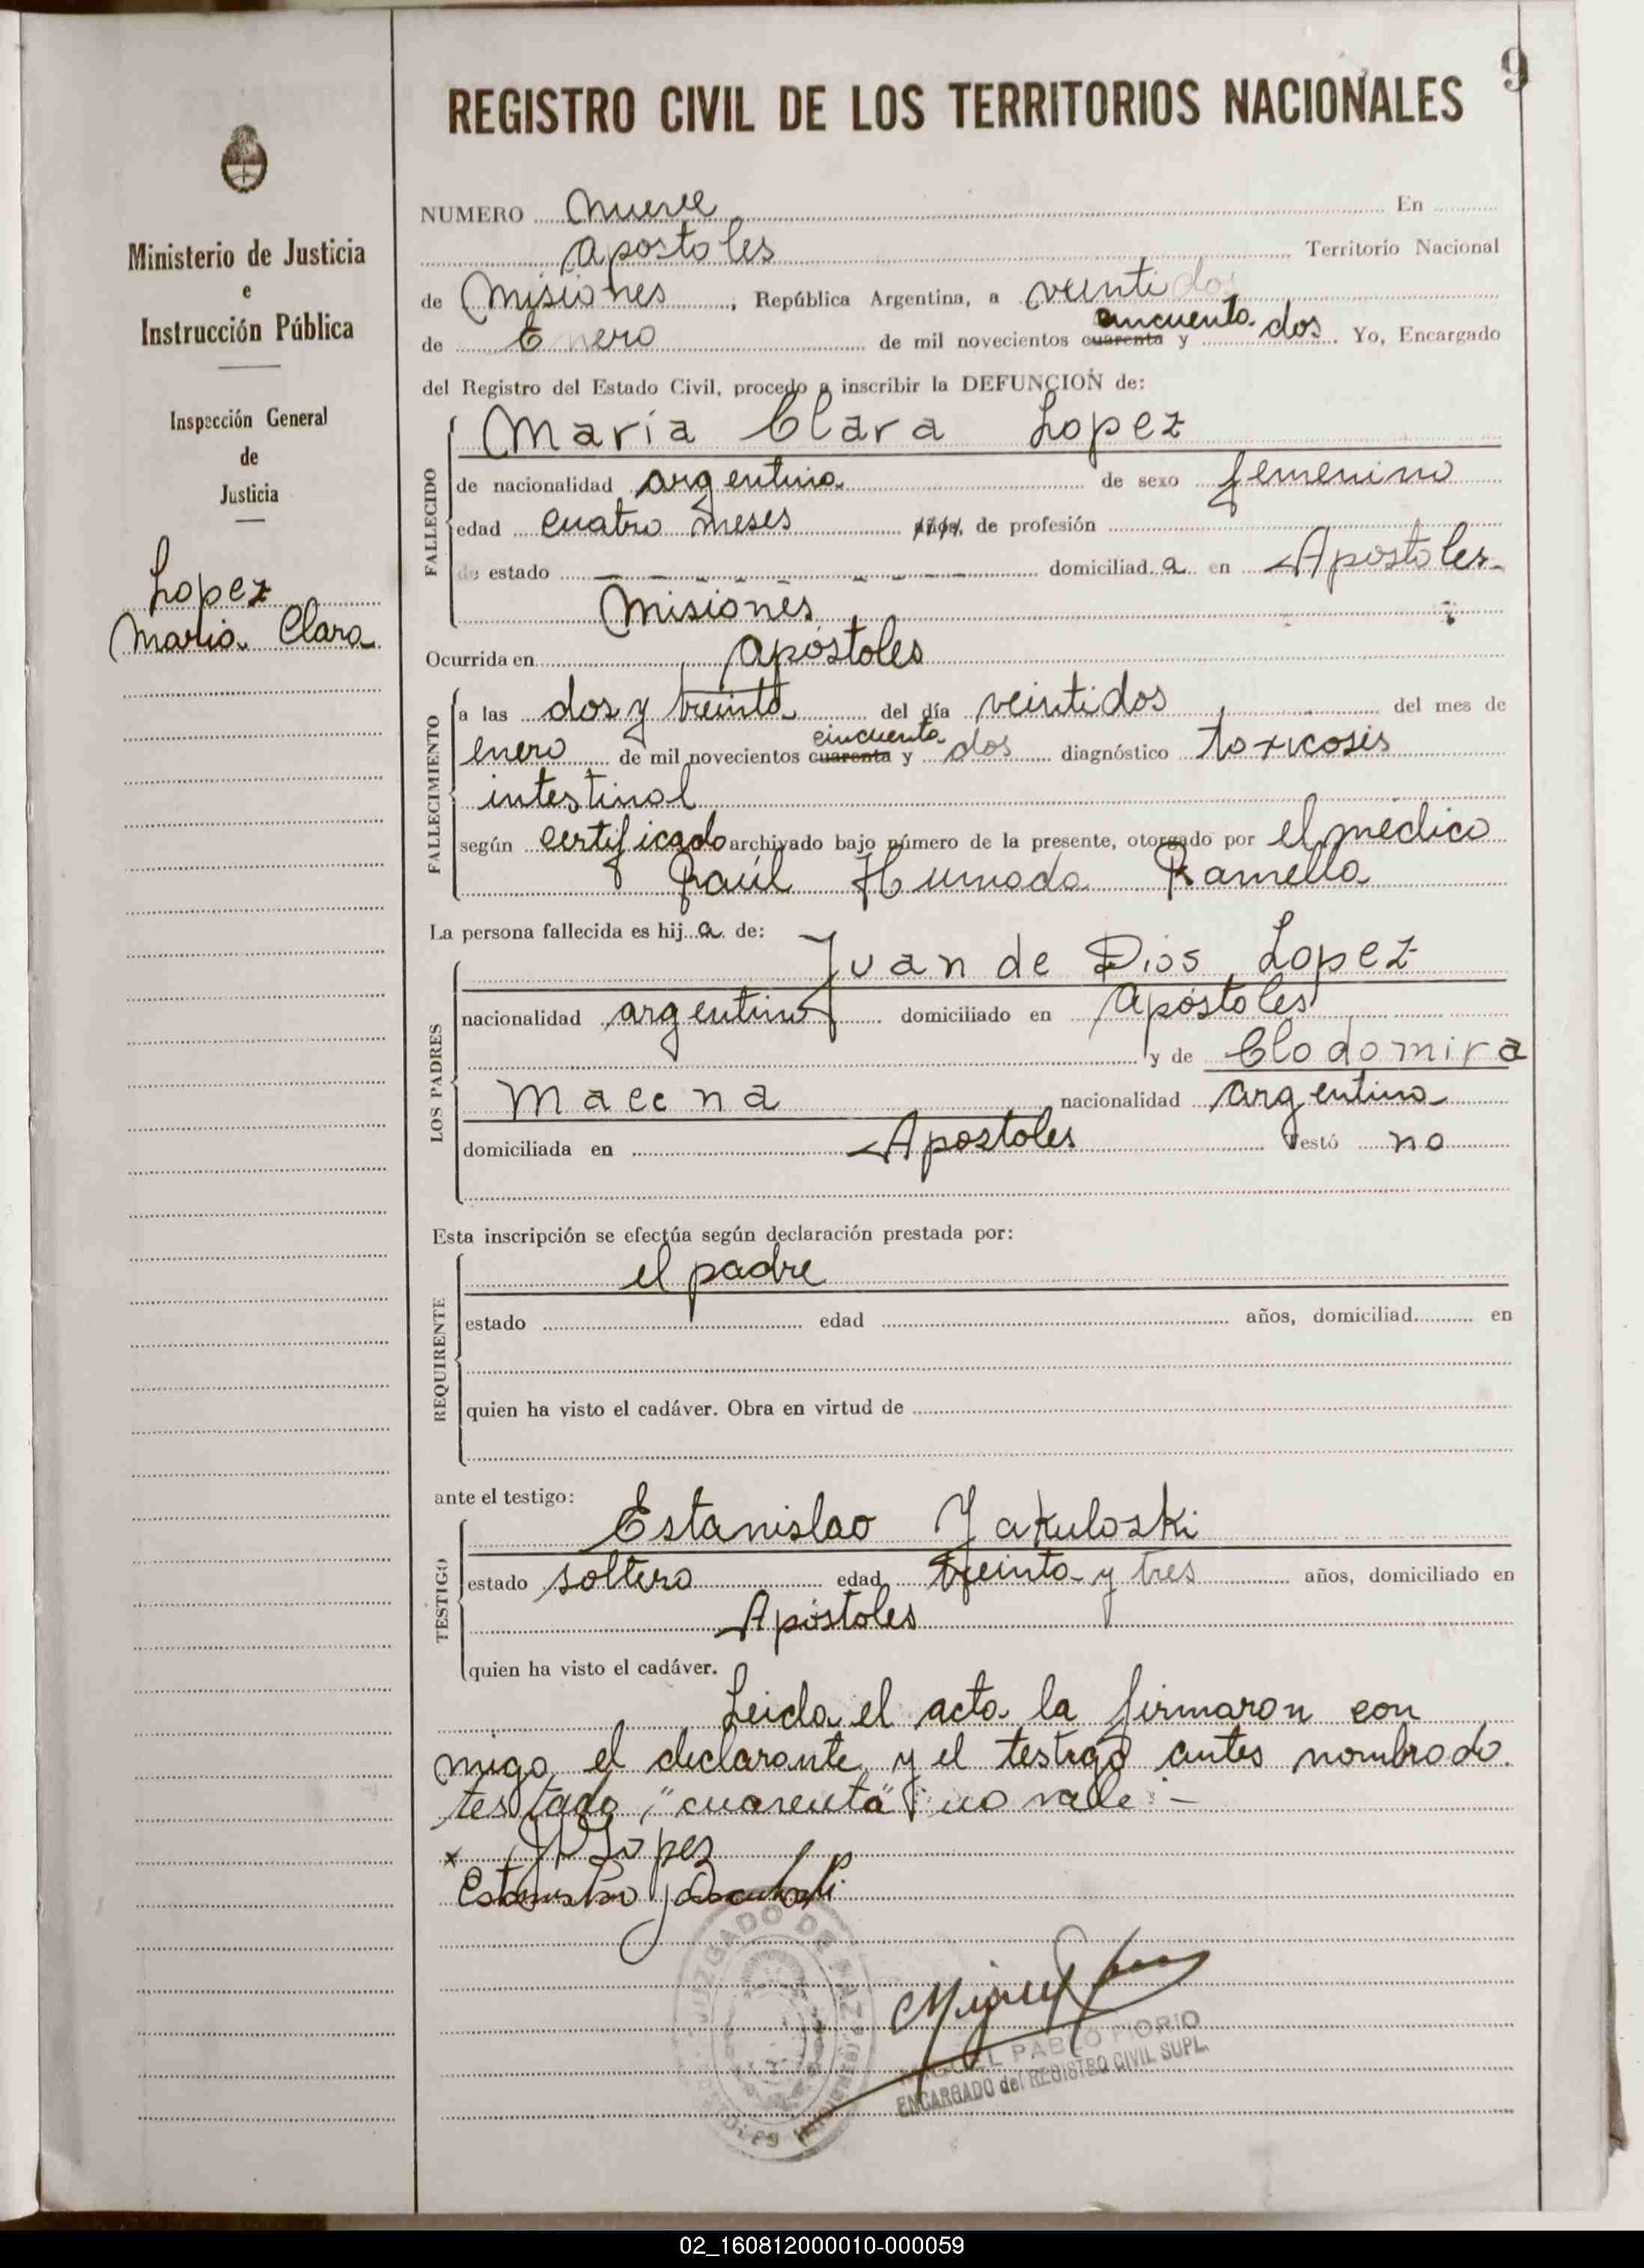 9
REGISTRO CIVIL DE LOS TERRITORIOS NACIONALES
Ministerio de Justicia
e
Instrucción Pública
Inspección General
de
Justicia
Lopez
Maria Clara
NUMERO nueve En
Apostoles Territorio Nacional
de Misiones, República Argentina, a veintidos
de Enero de mil novecientos cuarenta cincuenta y dos. Yo, Encargado
del Registro del Estado Civil, procedo a inscribir la DEFUNCION de:
FALLECIDO
María Clara Lopez
de nacionalidad argentina de sexo femenino
edad cuatro meses años, de profesión
de estado domiciliada en Apostoles
Misiones
Ocurrida en Apóstoles
FALLECIMIENTO
a las dos y treinta del día veintidos del mes de
enero de mil novecientos cuarenta cincuenta y dos diagnóstico toxicosis
intestinal
según certificado archivado bajo número de la presente, otorgado por el médico
Raúl Ramella
La persona fallecida es hija de:
LOS PADRES
Juan de Dios Lopez
nacionalidad argentino domiciliado en Apóstoles
y de Clodomira
nacionalidad argentina
domiciliada en Apostoles Testó no
Esta inscripción se efectúa según declaración prestada por:
REQUIRENTE
el padre
estado edad años, domiciliad en
quien ha visto el cadáver. Obra en virtud de
ante el testigo:
TESTIGO
Estanislao Jakuloski
estado soltero edad treinta y tres años, domiciliado en
Apóstoles
quien ha visto el cadáver.
Leida el acta la firmaron con
migo el declarante y el testigo antes nombrado.
testado, "cuarenta": no vale:-
x J D Lopez
Estanislao
JUZGADO DE PAZ
MIGUEL PABLO FIORIO
ENCARGADO del REGISTRO CIVIL SUPL.
02_160812000010-000059